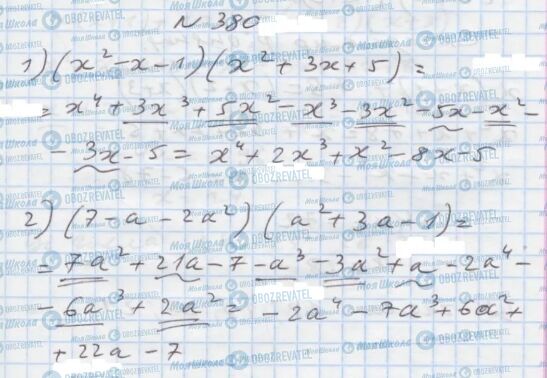 N 380
1) (x² - x - 1)(x² + 3x + 5) =
= x⁴ + 3x³ + 5x² - x³ - 3x² - 5x - x² -
- 3x - 5 = x⁴ + 2x³ + x² - 8x - 5
2) (7 - a - 2a²)(a² + 3a - 1) =
= 7a² + 21a - 7 - a³ - 3a² + a - 2a⁴ -
- 6a³ + 2a² = - 2a⁴ - 7a³ + 6a² +
+ 22a - 7